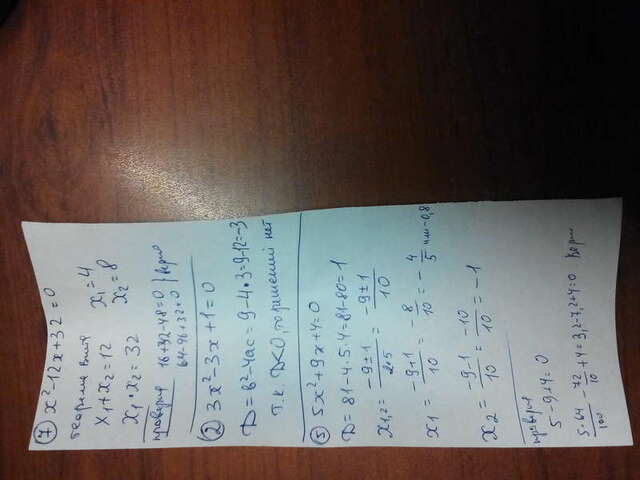 ⑦ x²-12x+32=0
теорема виет
x₁+x₂=12 x₁=4
x₁·x₂=32 x₂=8
проверка 16+32-48=0 } верно
64-96+32=0
② 3x²-3x+1=0
D=b²-4ac=9-4·3=9-12=-3
т.к. D<0, то решений нет
⑤ 5x²+9x+4=0
D=81-4·5·4=81-80=1
x₁,₂=(-9±1)/(2·5)=(-9±1)/10
x₁=(-9+1)/10=-8/10=-4/5 или -0,8
x₂=(-9-1)/10=-10/10=-1
проверка
5-9+4=0
5·64/100-72/10+4=3,2-7,2+4=0 верно